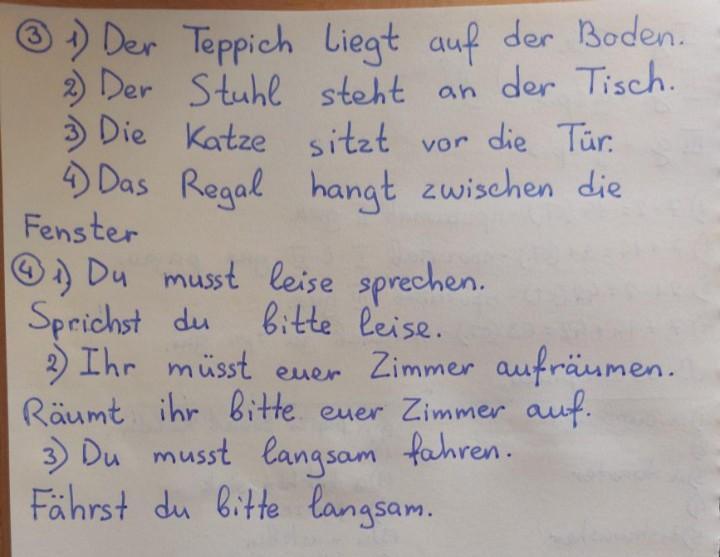 ③ 1) Der Teppich liegt auf der Boden.
2) Der Stuhl steht an der Tisch.
3) Die Katze sitzt vor die Tür.
4) Das Regal hangt zwischen die
Fenster
④ 1) Du musst leise sprechen.
Sprichst du bitte leise.
2) Ihr müsst euer Zimmer aufräumen.
Räumt ihr bitte euer Zimmer auf.
3) Du musst langsam fahren.
Fährst du bitte langsam.